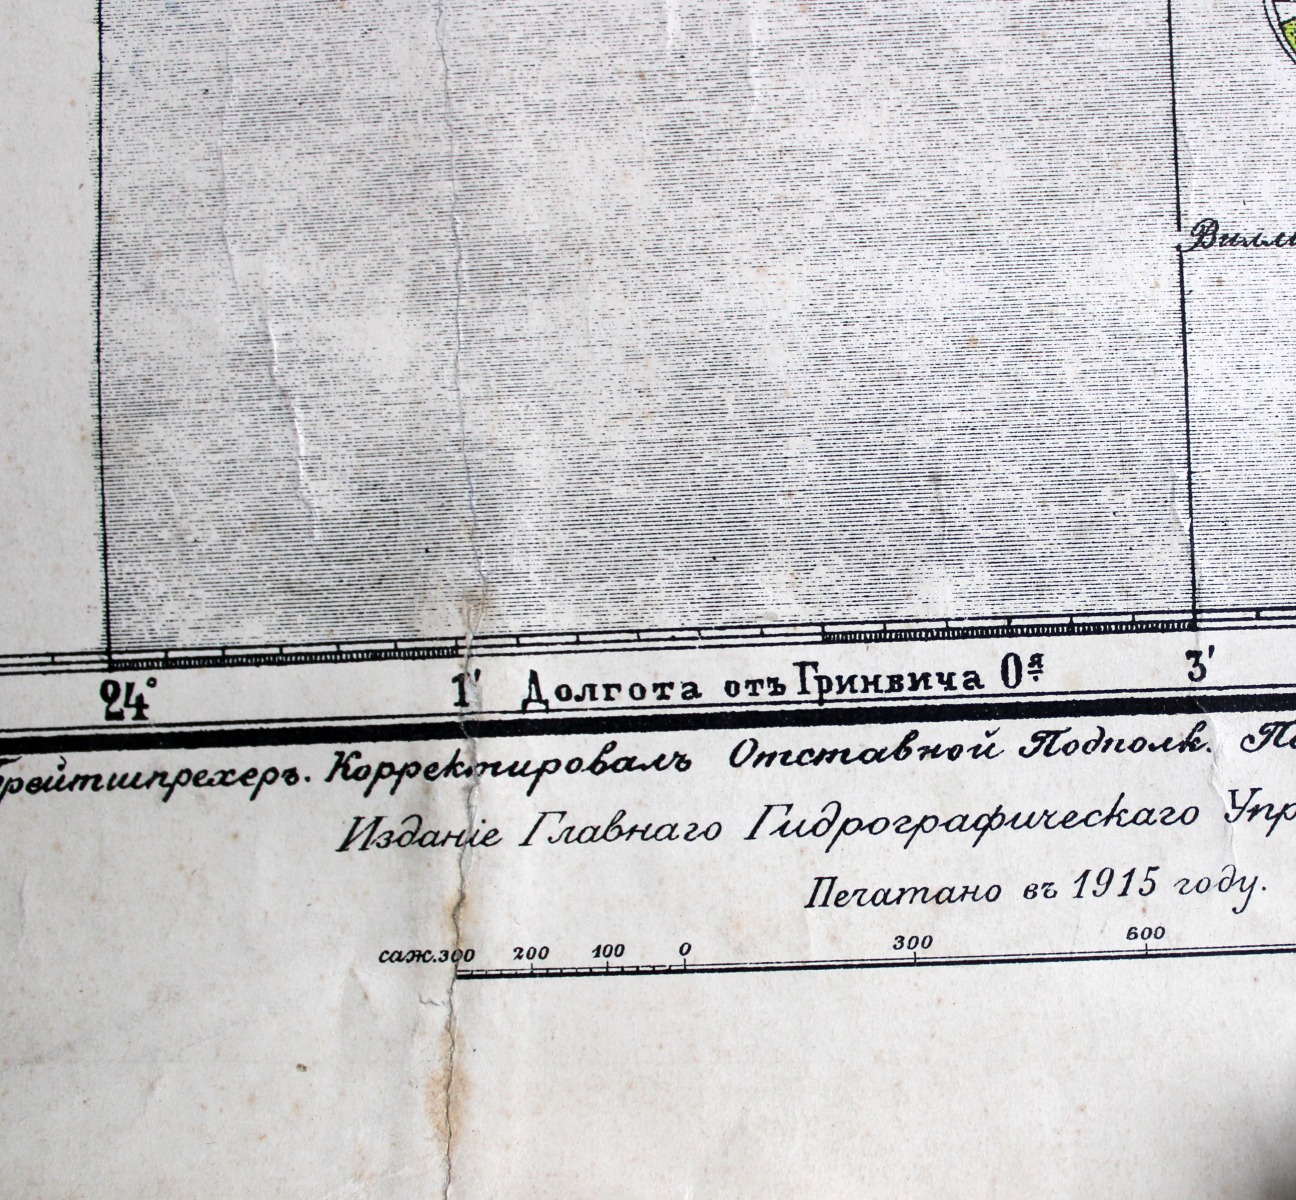 Вилли
24° 1' Долгота отъ Гринвича 0ⁿ 3'
рейтшпрехеръ. Корректировалъ Отставной Подполк. По
Изданіе Главнаго Гидрографическаго Упр
Печатано въ 1915 году.
саж.300 200 100 0 300 600